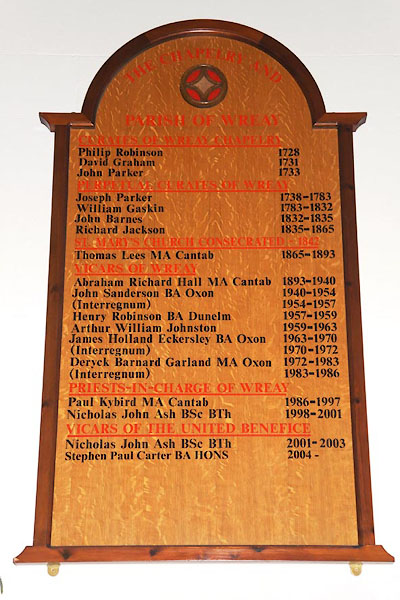 THE CHAPELRY AND
PARISH OF WREAY
CURATES OF WREAY CHAPELRY
Philip Robinson 1728
David Graham 1731
John Parker 1733
PERPETUAL CURATES OF WREAY
Joseph Parker 1738-1783
William Gaskin 1783-1832
John Barnes 1832-1835
Richard Jackson 1835-1865
ST. MARY'S CHURCH CONSECRATED - 1842
Thomas Lees MA Cantab 1865-1893
VICARS OF WREAY
Abraham Richard Hall MA Cantab 1893-1940
John Sanderson BA Oxon 1940-1954
(Interregnum) 1954-1957
Henry Robinson BA Dunelm 1957-1959
Arthur William Johnston 1959-1963
James Holland Eckersley BA Oxon 1963-1970
(Interregnum) 1970-1972
Deryck Barnard Garland MA Oxon 1972-1983
(Interregnum) 1983-1986
PRIESTS-IN-CHARGE OF WREAY
Paul Kybird MA Cantab 1986-1997
Nicholas John Ash BSc BTh 1998-2001
VICARS OF THE UNITED BENEFICE
Nicholas John Ash BSc BTh 2001-2003
Stephen Paul Carter BA HONS 2004 -